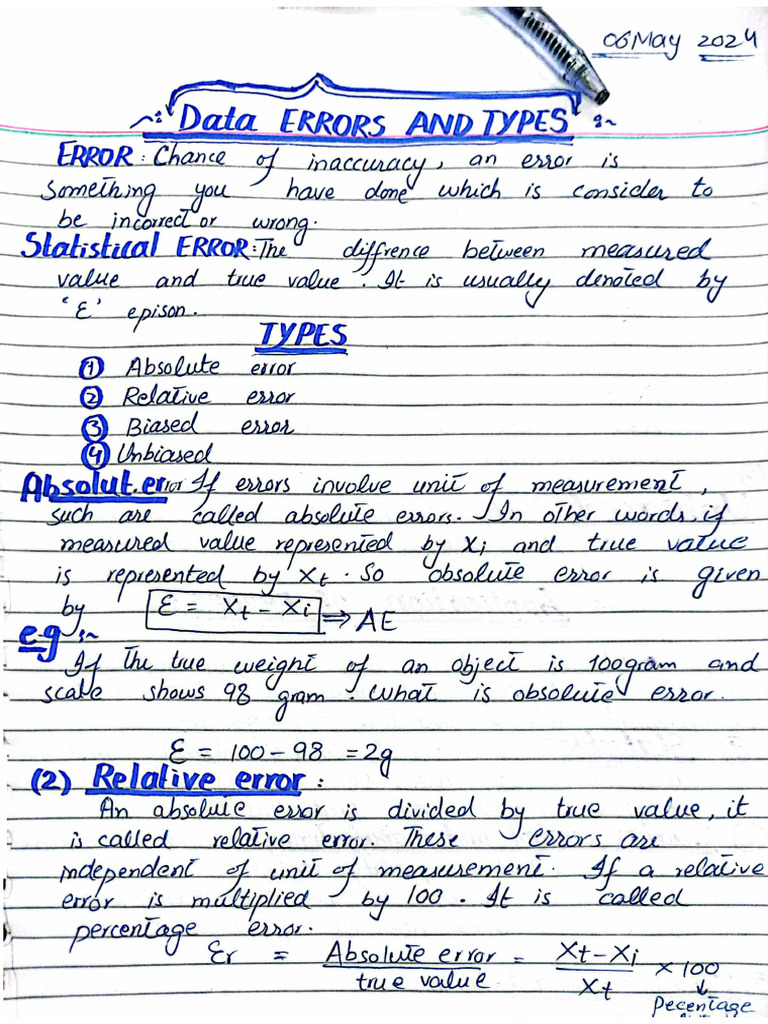 06 May 2024
~: Data ERRORS AND TYPES :~
ERROR: Chance of inaccuracy, an error is
something you have done which is consider to
be incorrect or wrong.
Statistical ERROR: The diffrence between measured
value and true value. It is usually denoted by
'ε' epison.
TYPES
① Absolute error
② Relative error
③ Biased error
④ Unbiased
Absolut.error If errors involve unit of measurement,
such are called absolute errors. In other words, if
measured value represented by Xi and true value
is represented by Xt. So absolute error is given
by ε = Xt - Xi ⇒ AE
e.g :~
If the true weight of an object is 100gram and
scale shows 98 gram. What is absolute error.
ε = 100 - 98 = 2g
(2) Relative error:
An absolute error is divided by true value, it
is called relative error. These errors are
independent of unit of measurement. If a relative
error is multiplied by 100. It is called
percentage error.
εr = Absolute error / true value = Xt - Xi / Xt × 100
↓
Pecentage